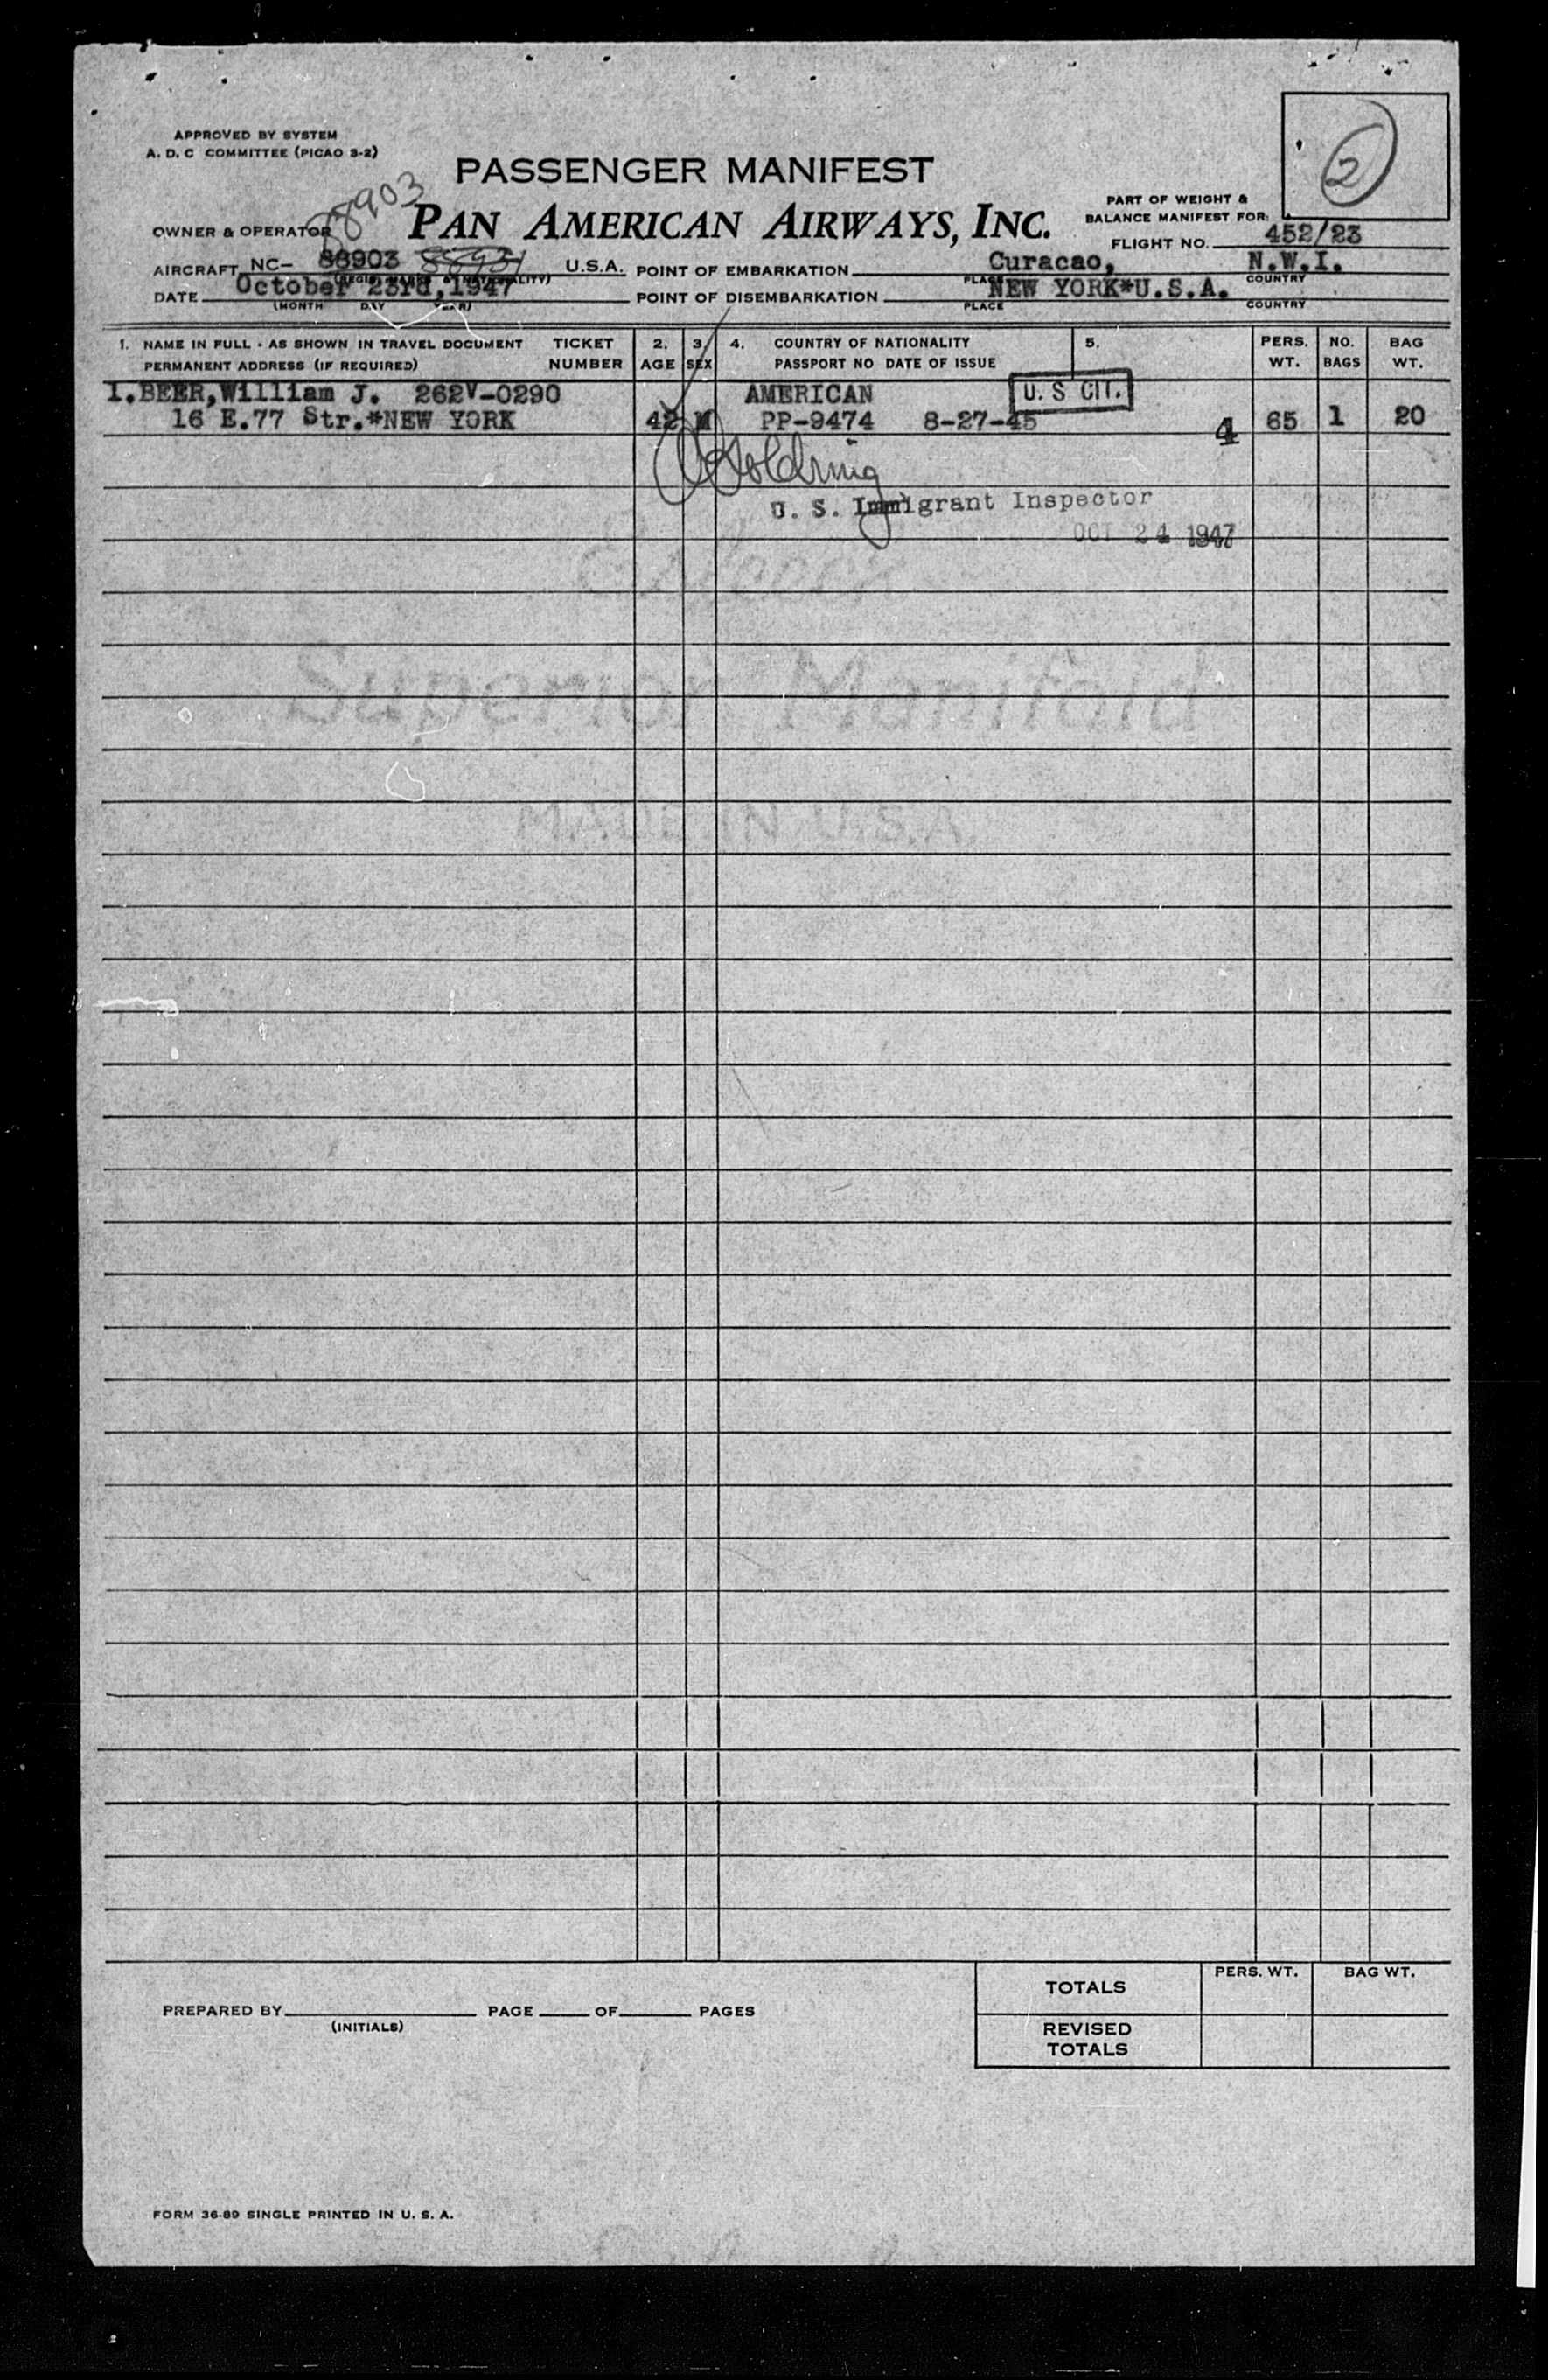 APPROVED BY SYSTEM
A. D. C COMMITTEE (PICAO 3-2)
2
PASSENGER MANIFEST
88903
PART OF WEIGHT &
BALANCE MANIFEST FOR:
OWNER & OPERATOR PAN AMERICAN AIRWAYS, INC.
FLIGHT NO. 452/23
AIRCRAFT NC- 88903 88931 U.S.A. POINT OF EMBARKATION Curacao, N.W.I.
PLACE COUNTRY
DATE October 23rd,1947 POINT OF DISEMBARKATION NEW YORK*U.S.A.
(MONTH DAY YEAR) PLACE COUNTRY
1. NAME IN FULL - AS SHOWN IN TRAVEL DOCUMENT TICKET 2. 3. 4. COUNTRY OF NATIONALITY 5. PERS. NO. BAG
PERMANENT ADDRESS (IF REQUIRED) NUMBER AGE SEX PASSPORT NO DATE OF ISSUE WT. BAGS WT.
1.BEER,William J. 262V-0290 AMERICAN U. S CIT.
16 E.77 Str.*NEW YORK 42 M PP-9474 8-27-45 4 65 1 20
U. S. Immigrant Inspector
OCT 24 1947
Superior Manifold
MADE IN U.S.A.
TOTALS PERS. WT. BAG WT.
PREPARED BY PAGE OF PAGES
(INITIALS)
REVISED
TOTALS
FORM 36-89 SINGLE PRINTED IN U. S. A.